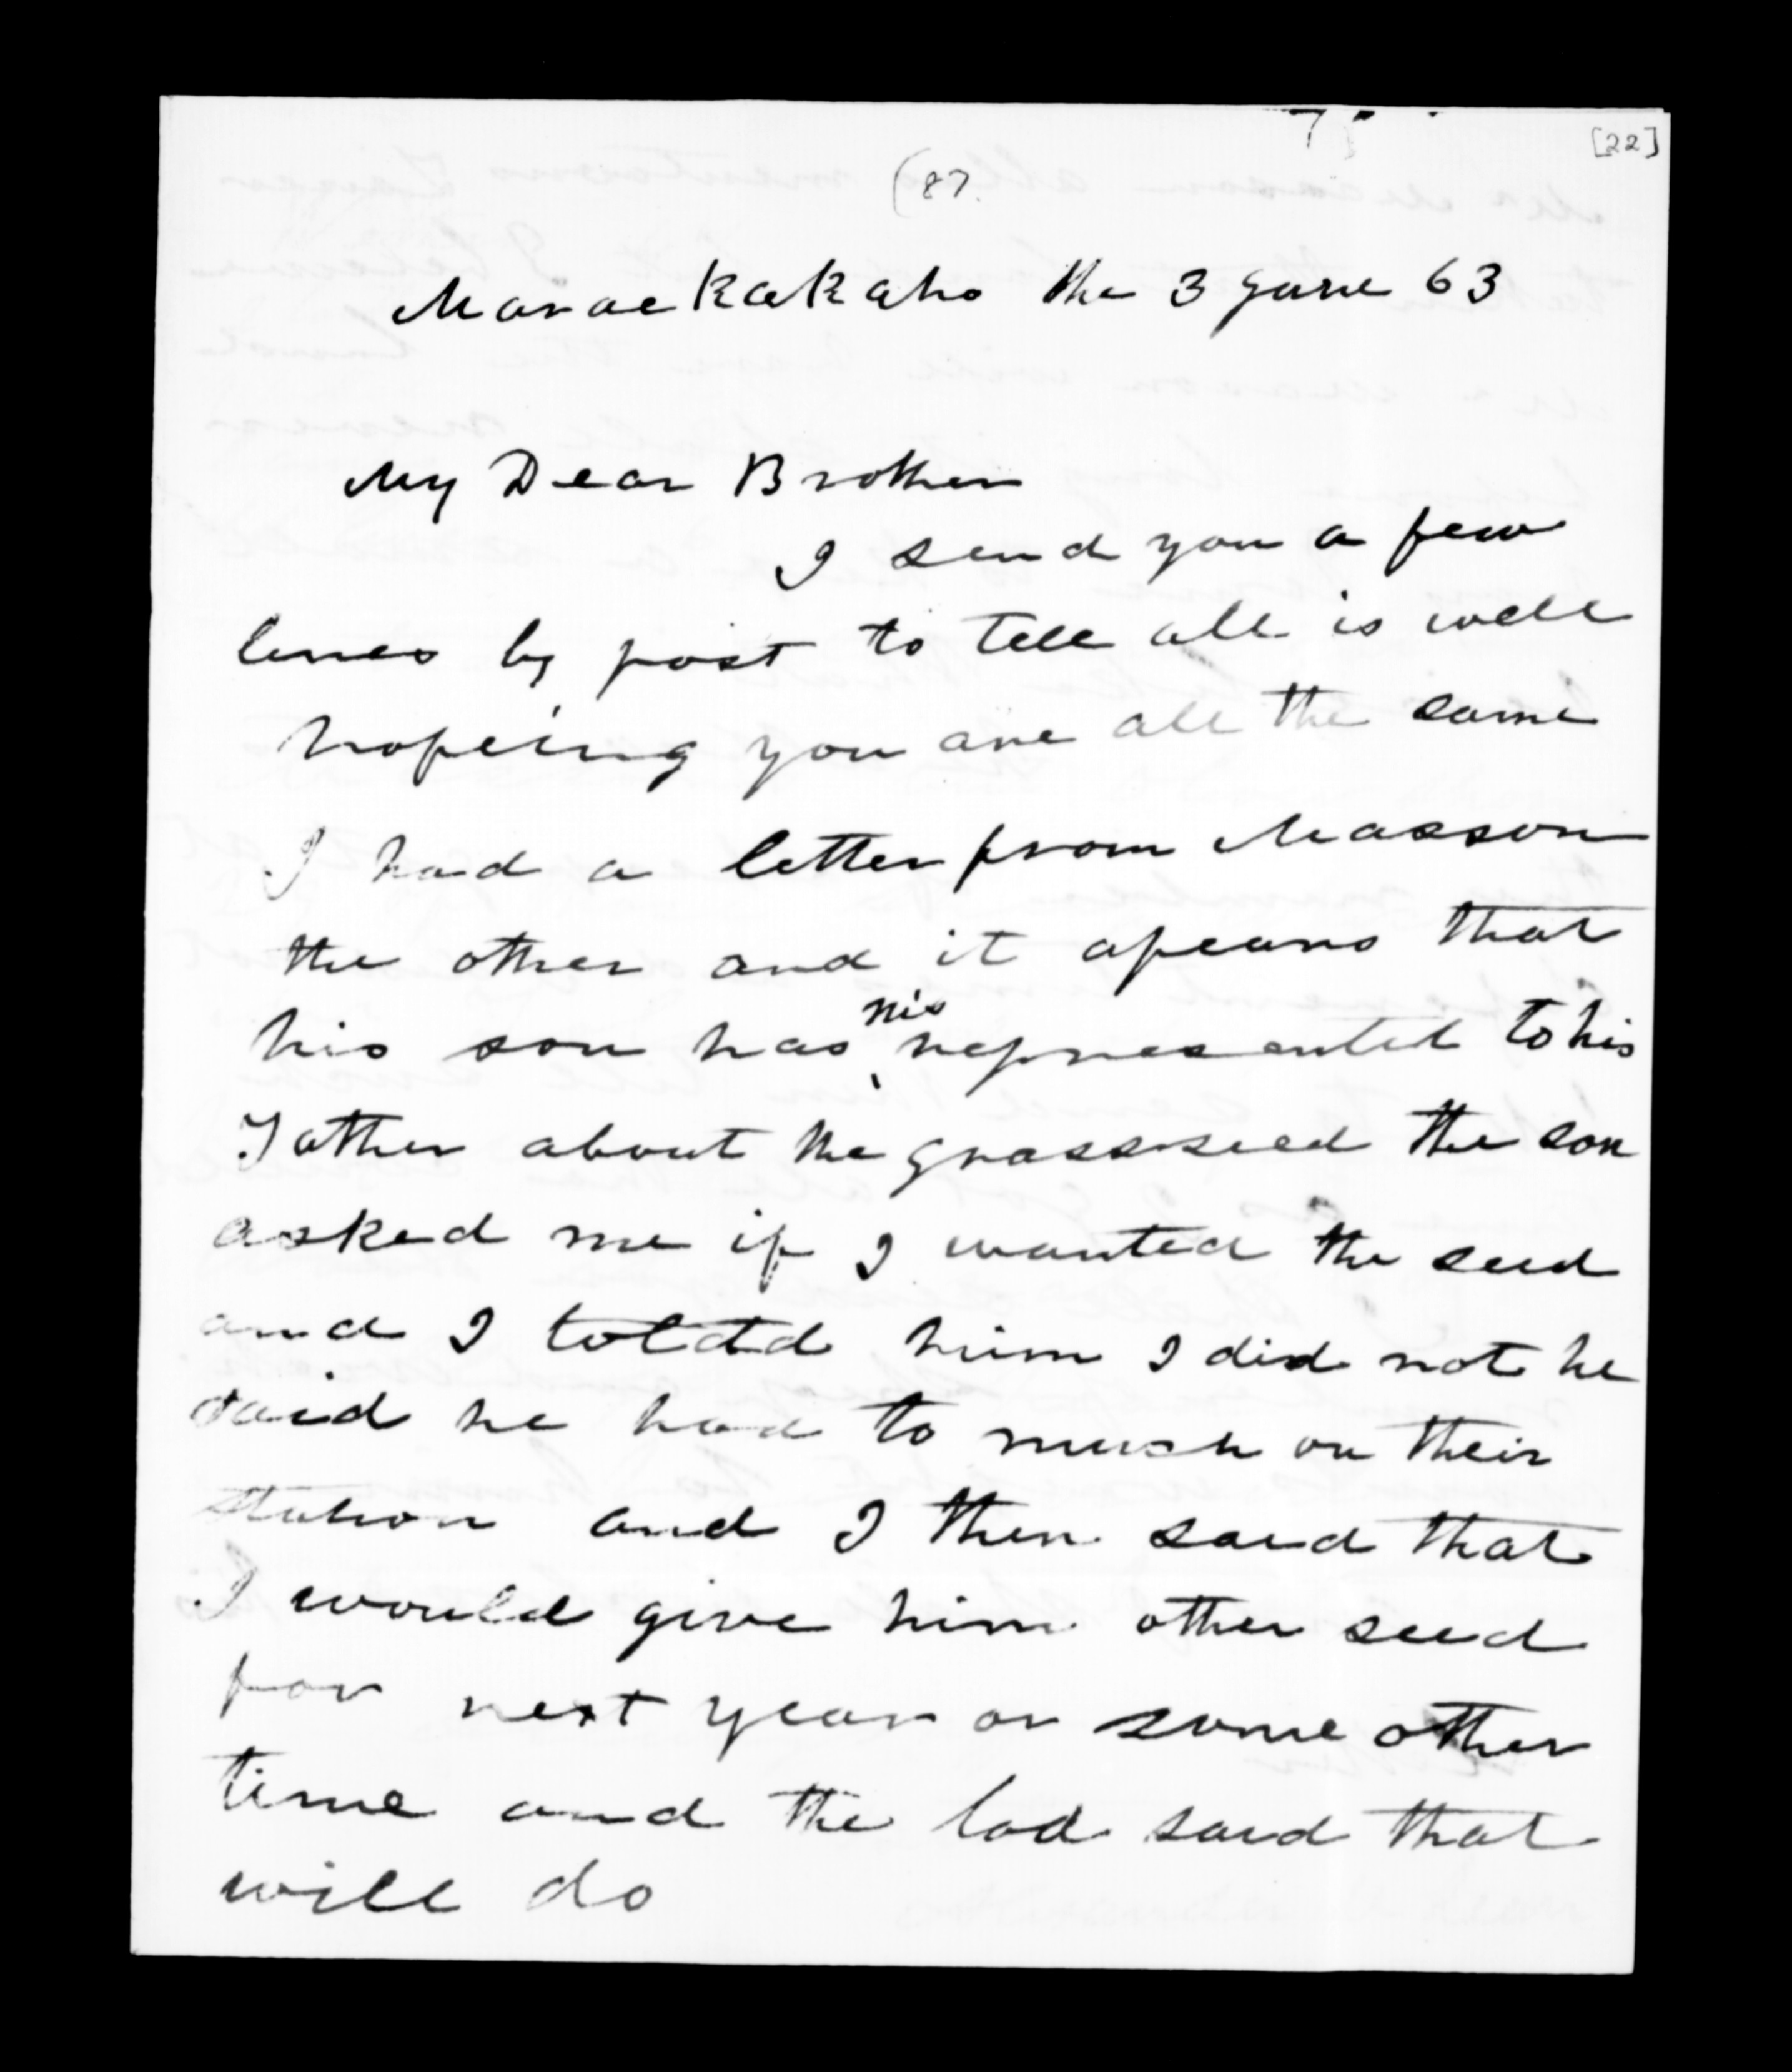 [22]
(87.
Maraekakaho the 3 June 63
My Dear Brother
I send you a few
lines by post to tell all is well
hopeing you are all the same
I had a letter from Masson
the other and it apears that
his son has misrepresented to his
Father about the grass seed the son
asked me if I wanted the seed
and I toldd him I did not he
said he had to much on their
station and I then said that
I would give him other seed
for next year or some other
time and the lad said that
will do